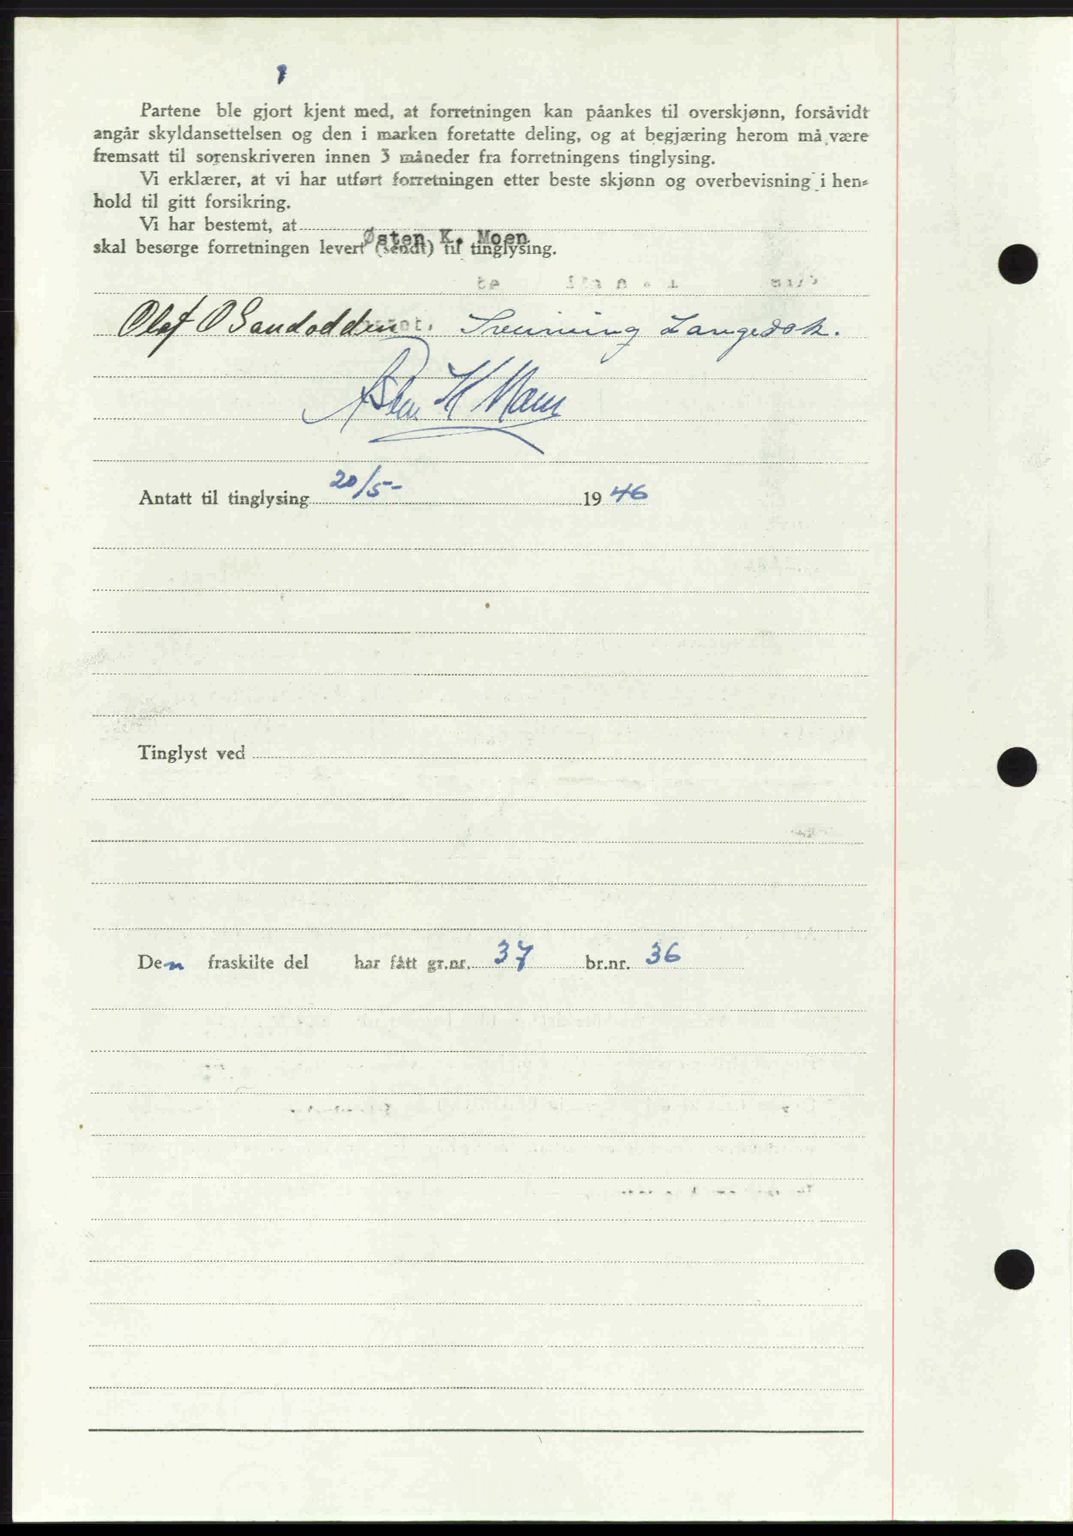 Partene ble gjort kjent med, at forretningen kan påankes til overskjønn, forsåvidt
angår skyldansettelsen og den i marken foretatte deling, og at begjæring herom må være
fremsatt til sorenskriveren innen 3 måneder fra forretningens tinglysing.
Vi erklærer, at vi har utført forretningen etter beste skjønn og overbevisning i hen-
hold til gitt forsikring.
Vi har bestemt, at
Østen K. Moen
skal besørge forretningen levert (sendt) til tinglysing.
Olaf O Sandodden Sveinung Langedok.
Østen K Moen
Antatt til tinglysing 20/5- 1946
Tinglyst ved
Den fraskilte del har fått gr.nr. 37 br.nr. 36